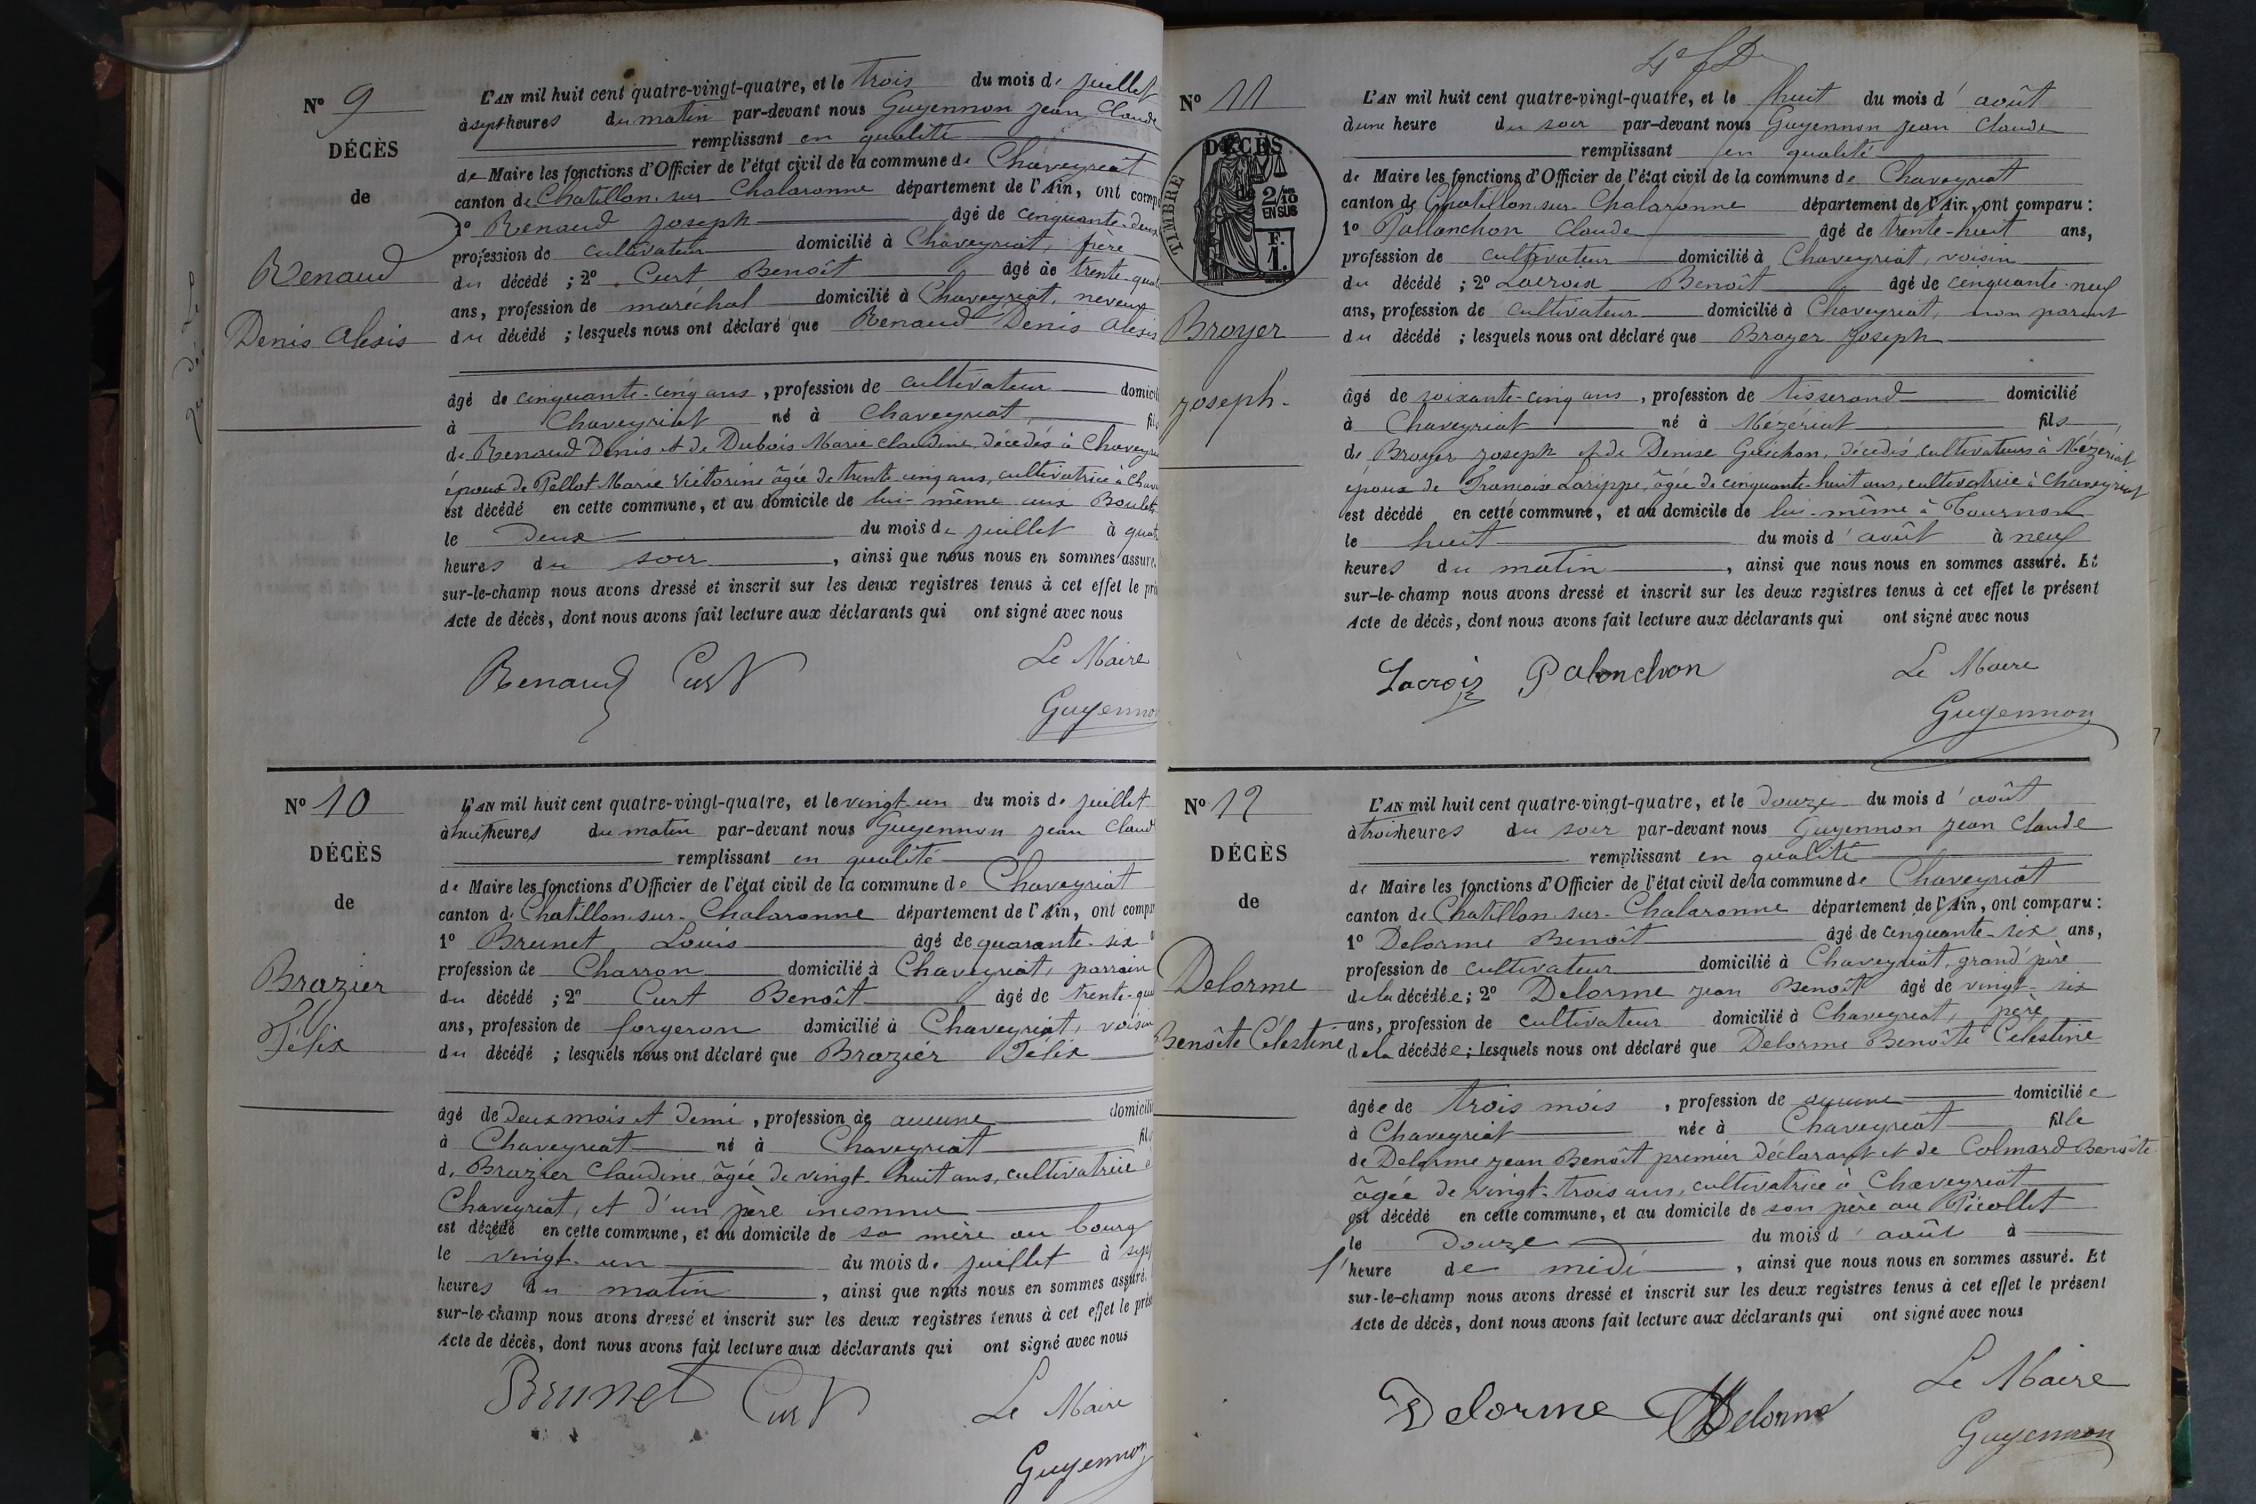 Nº 9
DÉCÈS
de
Renaud
Denis Alexis
L'AN mil huit cent quatre-vingt-quatre, et le trois du mois de juillet
à sept heures du matin par-devant nous Guyennon Jean Claude
remplissant en qualité
de Maire les fonctions d'Officier de l'état civil de la commune de Chaveyriat
canton de Chatillon-sur-Chalaronne département de l'Ain, ont comp
1º Renaud Joseph âgé de cinquante-deux
profession de cultivateur domicilié à Chaveyriat, frère
du décédé ; 2º Curt Benoît âgé de trente-qua
ans, profession de maréchal domicilié à Chaveyriat, neveux
du décédé ; lesquels nous ont déclaré que Renaud Denis Alexis
âgé de cinquante-cinq ans, profession de cultivateur domicili
à Chaveyriat né à Chaveyriat fils
de Renaud Denis et de Dubois Marie Claudine, décédés à Chaveyri
époux de Pellot Marie Victorine âgée de trente cinq ans, cultivatrice à Chav
est décédé en cette commune, et au domicile de lui-même aux Boulets
le deux du mois de juillet à quat
heures du soir, ainsi que nous nous en sommes assuré.
sur-le-champ nous avons dressé et inscrit sur les deux registres tenus à cet effet le pré
Acte de décès, dont nous avons fait lecture aux déclarants qui ont signé avec nous
Renaud Curt
Le Maire
Guyennon
Nº 10
DÉCÈS
de
Brazier
Félix
L'AN mil huit cent quatre-vingt-quatre, et le vingt-un du mois de juillet
à huit heures du matin par-devant nous Guyennon Jean Claud
remplissant en qualité
de Maire les fonctions d'Officier de l'état civil de la commune de Chaveyriat
canton de Chatillon-sur-Chalaronne département de l'Ain, ont compar
1º Brunet Louis âgé de quarante-six
profession de Charron domicilié à Chaveyriat, parrain
du décédé ; 2º Curt Benoît âgé de trente-qua
ans, profession de forgeron domicilié à Chaveyriat, voisin
du décédé ; lesquels nous ont déclaré que Brazier Félix
âgé de deux mois et demi, profession de aucune domicilié
à Chaveyriat né à Chaveyriat fils
de Brazier Claudine, âgée de vingt-huit ans, cultivatrice à
Chaveyriat, et d'un père inconnu
est décédé en cette commune, et au domicile de sa mère au bourg
le vingt-un du mois de juillet à sept
heures du matin, ainsi que nous nous en sommes assuré.
sur-le-champ nous avons dressé et inscrit sur les deux registres tenus à cet effet le prés
Acte de décès, dont nous avons fait lecture aux déclarants qui ont signé avec nous
Brunet Curt
Le Maire
Guyennon
Nº 11
DÉCÈS
TIMBRE
2/10 EN SUS
F. 1.
Broyer
Joseph
L'AN mil huit cent quatre-vingt-quatre, et le huit du mois d'août
d'une heure du soir par-devant nous Guyennon Jean Claude
remplissant en qualité
de Maire les fonctions d'Officier de l'état civil de la commune de Chaveyriat
canton de Chatillon-sur-Chalaronne département de l'Ain, ont comparu :
1º Pallanchon Claude âgé de trente-huit ans,
profession de cultivateur domicilié à Chaveyriat, voisin
du décédé ; 2º Lacroix Benoît âgé de cinquante-neuf
ans, profession de cultivateur domicilié à Chaveyriat, non parent
du décédé ; lesquels nous ont déclaré que Broyer Joseph
âgé de soixante-cinq ans, profession de tisserand domicilié
à Chaveyriat né à Mézériat fils
de Broyer Joseph et de Denise Guichon, décédés cultivateurs à Mézériat
époux de Françoise Larippe, âgée de cinquante-huit ans, cultivatrice à Chaveyriat
est décédé en cette commune, et au domicile de lui-même à Tournon
le huit du mois d'août à neuf
heures du matin, ainsi que nous nous en sommes assuré. Et
sur-le-champ nous avons dressé et inscrit sur les deux registres tenus à cet effet le présent
Acte de décès, dont nous avons fait lecture aux déclarants qui ont signé avec nous
Lacroix Palonchon
Le Maire
Guyennon
Nº 12
DÉCÈS
de
Delorme
Benoîte Célestine
L'AN mil huit cent quatre-vingt-quatre, et le douze du mois d'août
à trois heures du soir par-devant nous Guyennon Jean Claude
remplissant en qualité
de Maire les fonctions d'Officier de l'état civil de la commune de Chaveyriat
canton de Chatillon-sur-Chalaronne département de l'Ain, ont comparu :
1º Delorme Benoît âgé de cinquante-six ans,
profession de cultivateur domicilié à Chaveyriat, grand'père
de la décédée ; 2º Delorme Jean Benoît âgé de vingt-six
ans, profession de cultivateur domicilié à Chaveyriat, père
de la décédée ; lesquels nous ont déclaré que Delorme Benoîte Célestine
âgée de trois mois, profession de aucune domiciliée
à Chaveyriat née à Chaveyriat fille
de Delorme Jean Benoît premier déclarant et de Colmard Benoîte
âgée de vingt-trois ans, cultivatrice à Chaveyriat
est décédé en cette commune, et au domicile de son père au Picollet
le douze du mois d'août à
l'heure de midi, ainsi que nous nous en sommes assuré. Et
sur-le-champ nous avons dressé et inscrit sur les deux registres tenus à cet effet le présent
Acte de décès, dont nous avons fait lecture aux déclarants qui ont signé avec nous
Delorme Delorme
Le Maire
Guyennon